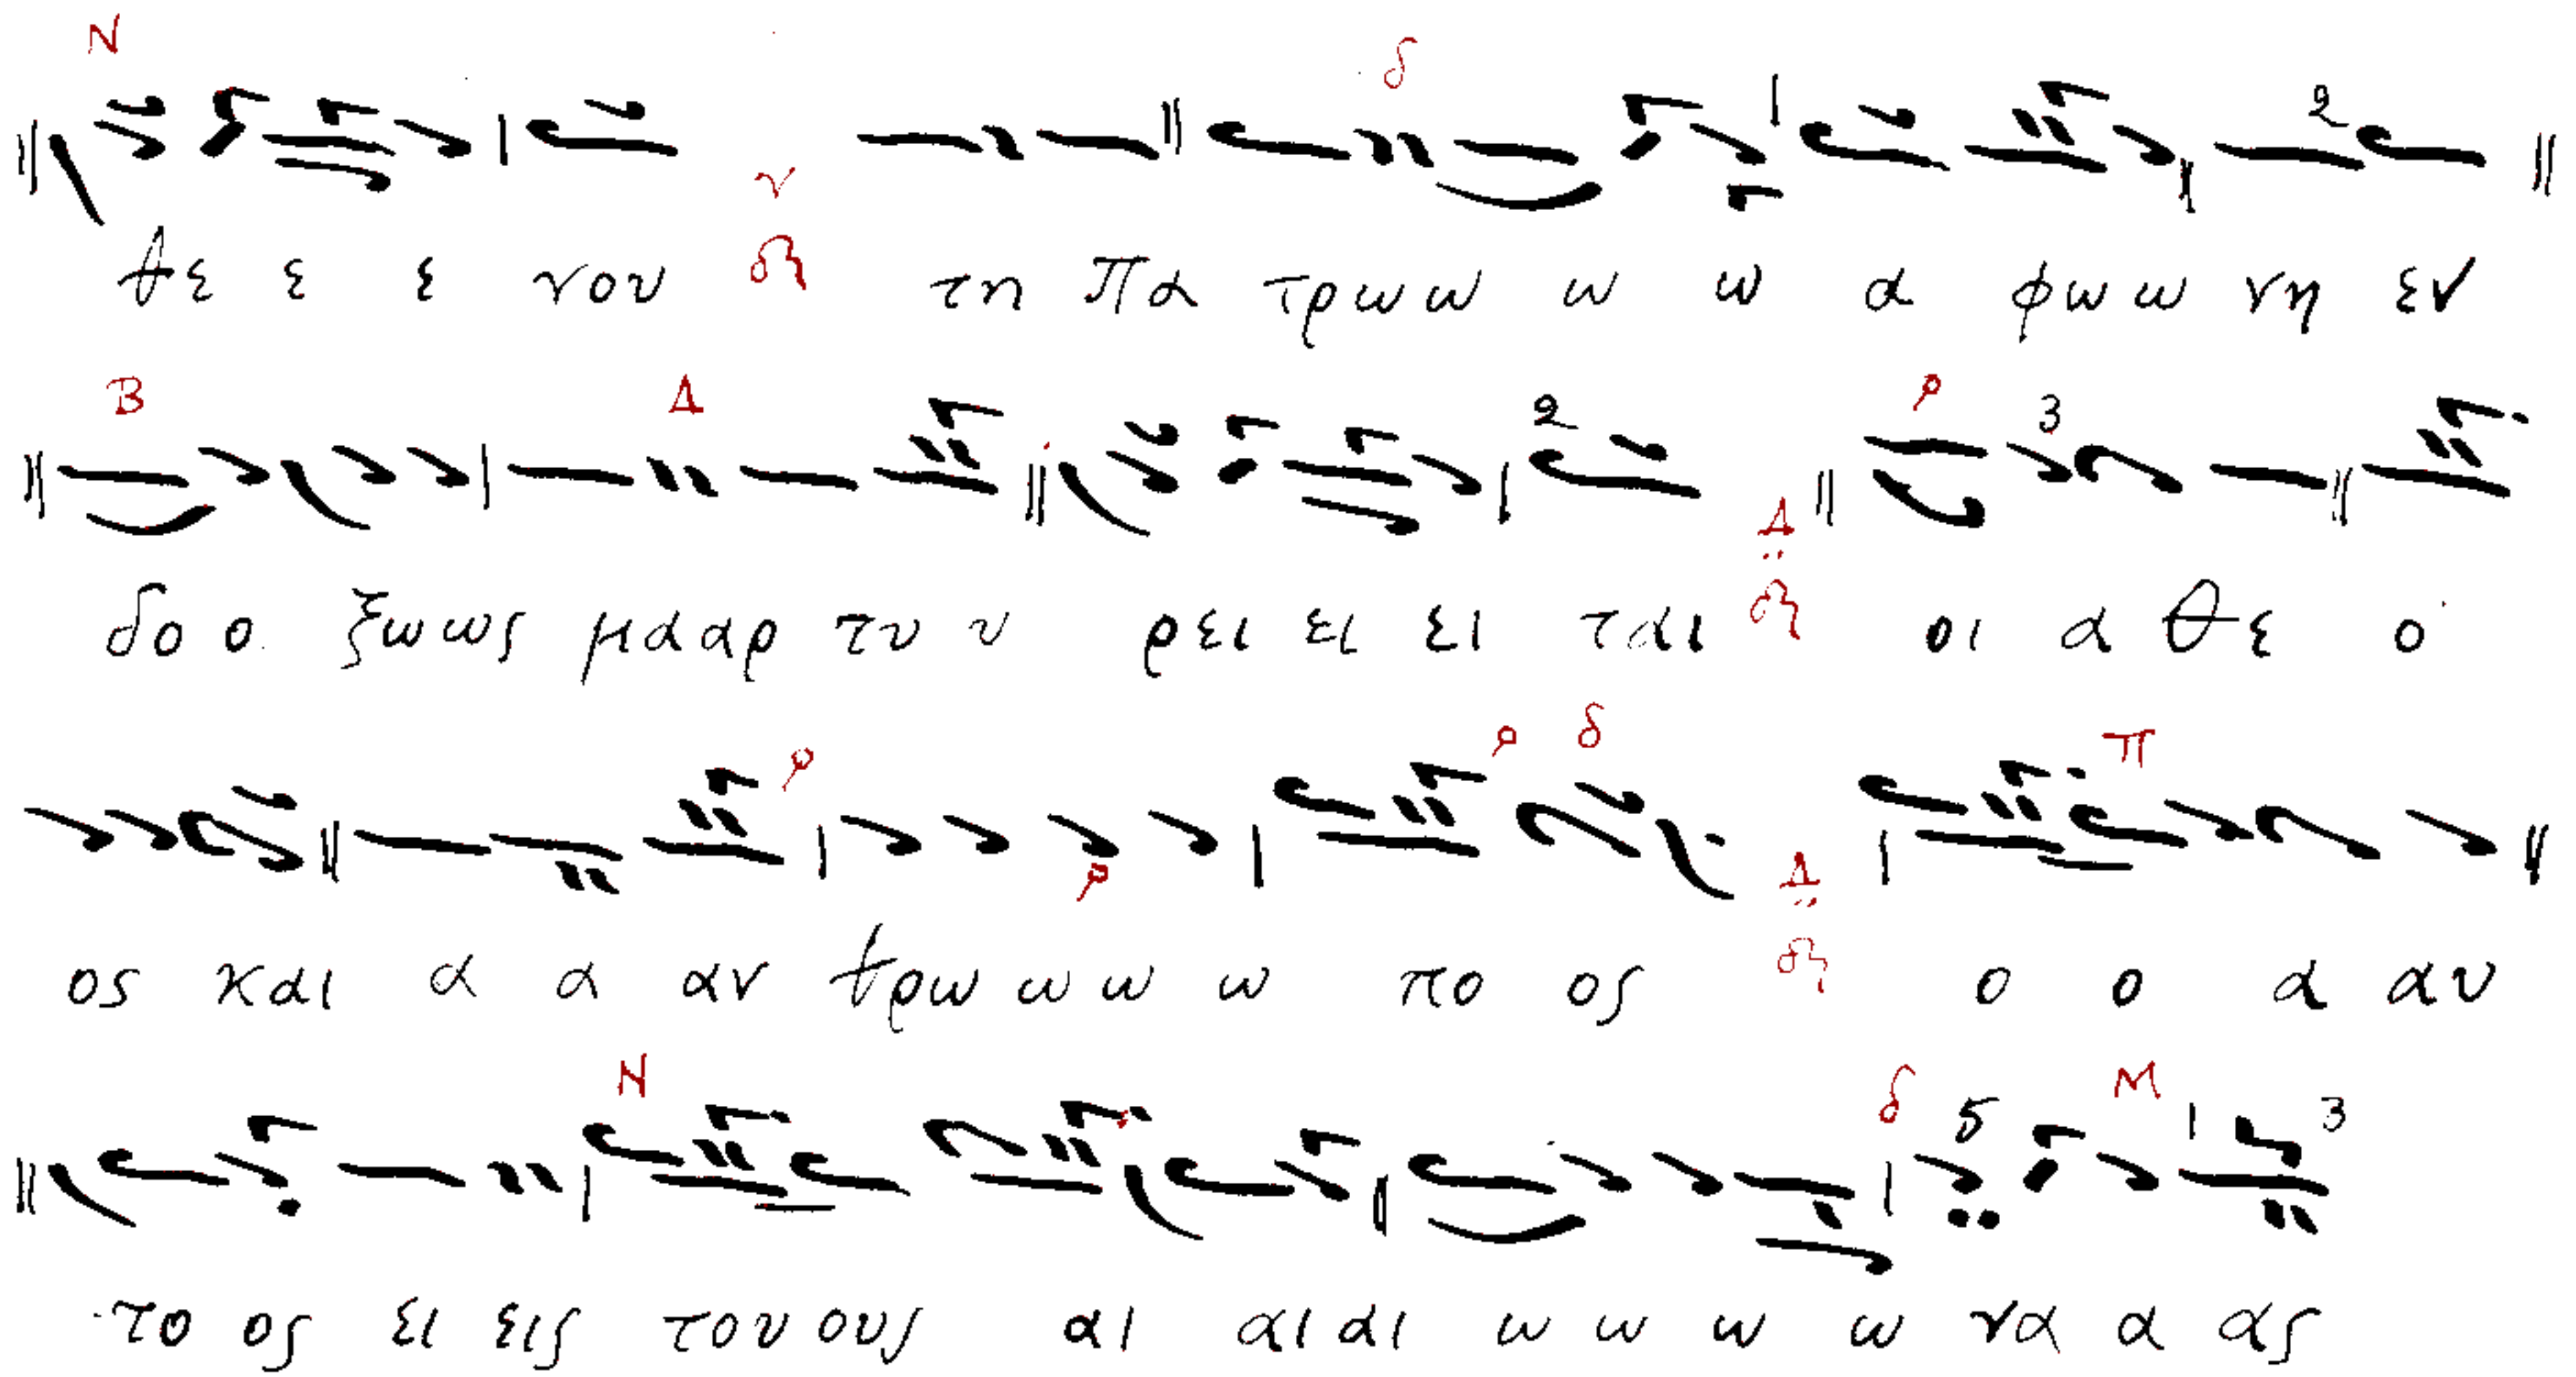 θε ε ε νου τη Πα τρωω ω ω α φωω νη εν
δο ο ξωως μααρ τυ υ ρει ει ει ται οι α θε ο
ος και α α αν θρω ω ω ω πο ος ο ο α αυ
το ος ει εις του ους αι αι αι ω ω ω ω να α ας